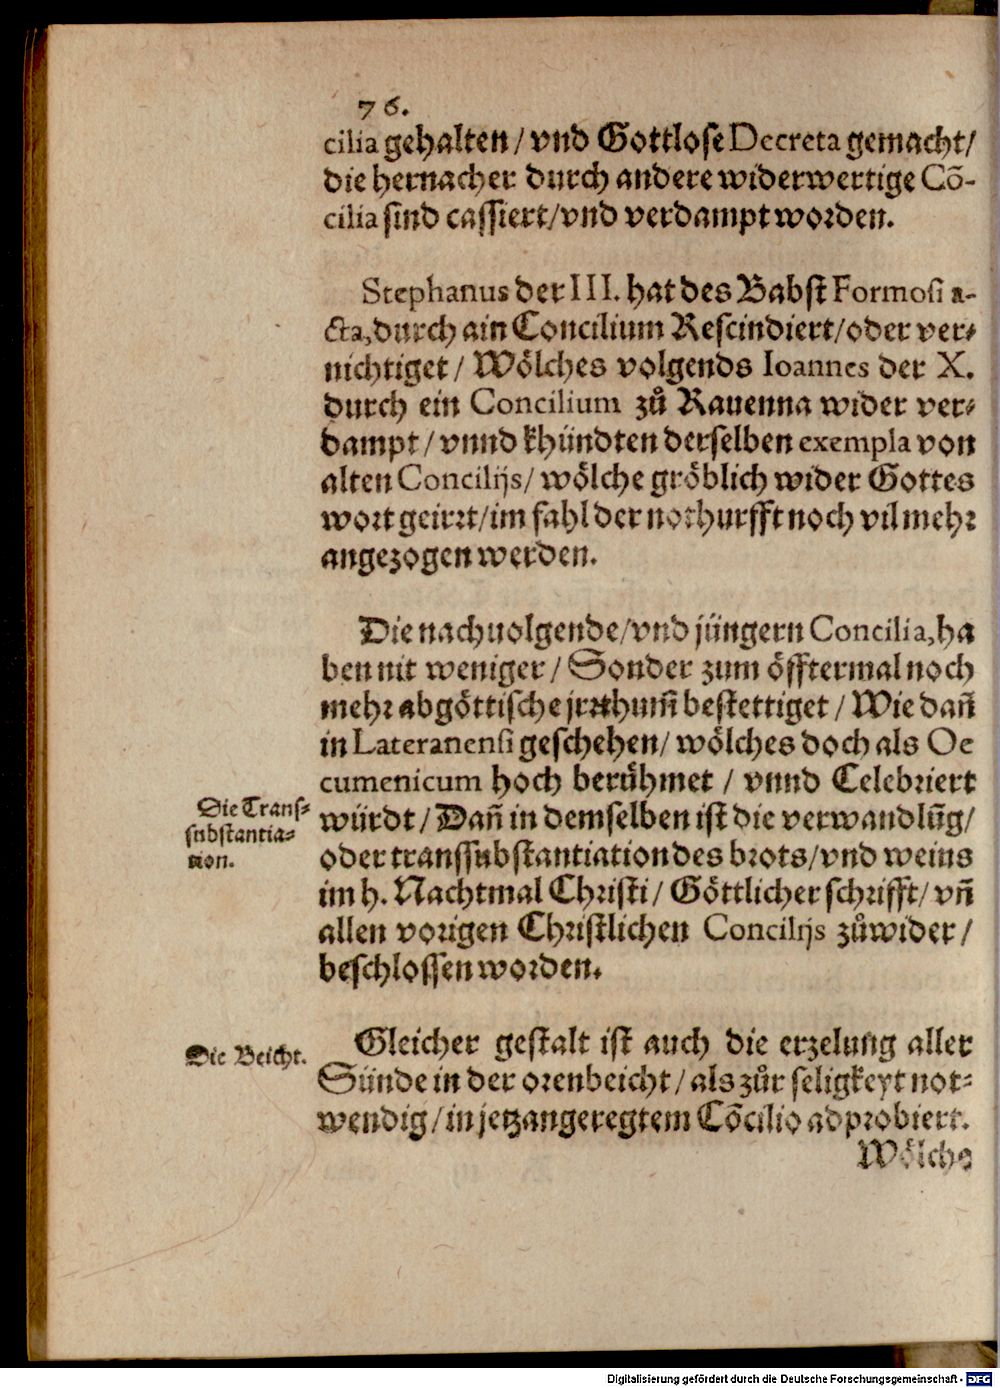 76.
cilia gehalten / vnd Gottlose Decreta gemacht /
die hernacher durch andere widerwertige Cõ-
cilia sind cassiert / vnd verdampt worden.
Stephanus der III. hat des Babst Formosi a-
cta, durch ain Concilium Rescindiert / oder ver-
nichtiget / Wölches volgends Ioannes der X.
durch ein Concilium zů Rauenna wider ver-
dampt / vnnd khündten derselben exempla von
alten Concilijs / wölche gröblich wider Gottes
wort geirrt / im fahl der nothurfft noch vil mehr
angezogen werden.
Die nachuolgende / vnd jüngern Concilia, ha
ben nit weniger / Sonder zum öfftermal noch
mehr abgöttische jrrthum̃ bestettiget / Wie dañ
in Lateranensi geschehen / wölches doch als Oe
cumenicum hoch berühmet / vnnd Celebriert
Die Trans-
substantia-
tion.
würdt / Dañ in demselben ist die verwandlũg /
oder transsubstantiation des brots / vnd weins
im h. Nachtmal Christi / Göttlicher schrifft / vñ
allen vorigen Christlichen Concilijs zůwider /
beschlossen worden.
Die Beicht.
Gleicher gestalt ist auch die erzelung aller
Sünde in der orenbeicht / als zůr seligkeyt not-
wendig / in jetzangeregtem Cõcilio adprobiert.
Wölche
Digitalisierung gefördert durch die Deutsche Forschungsgemeinschaft - DFG